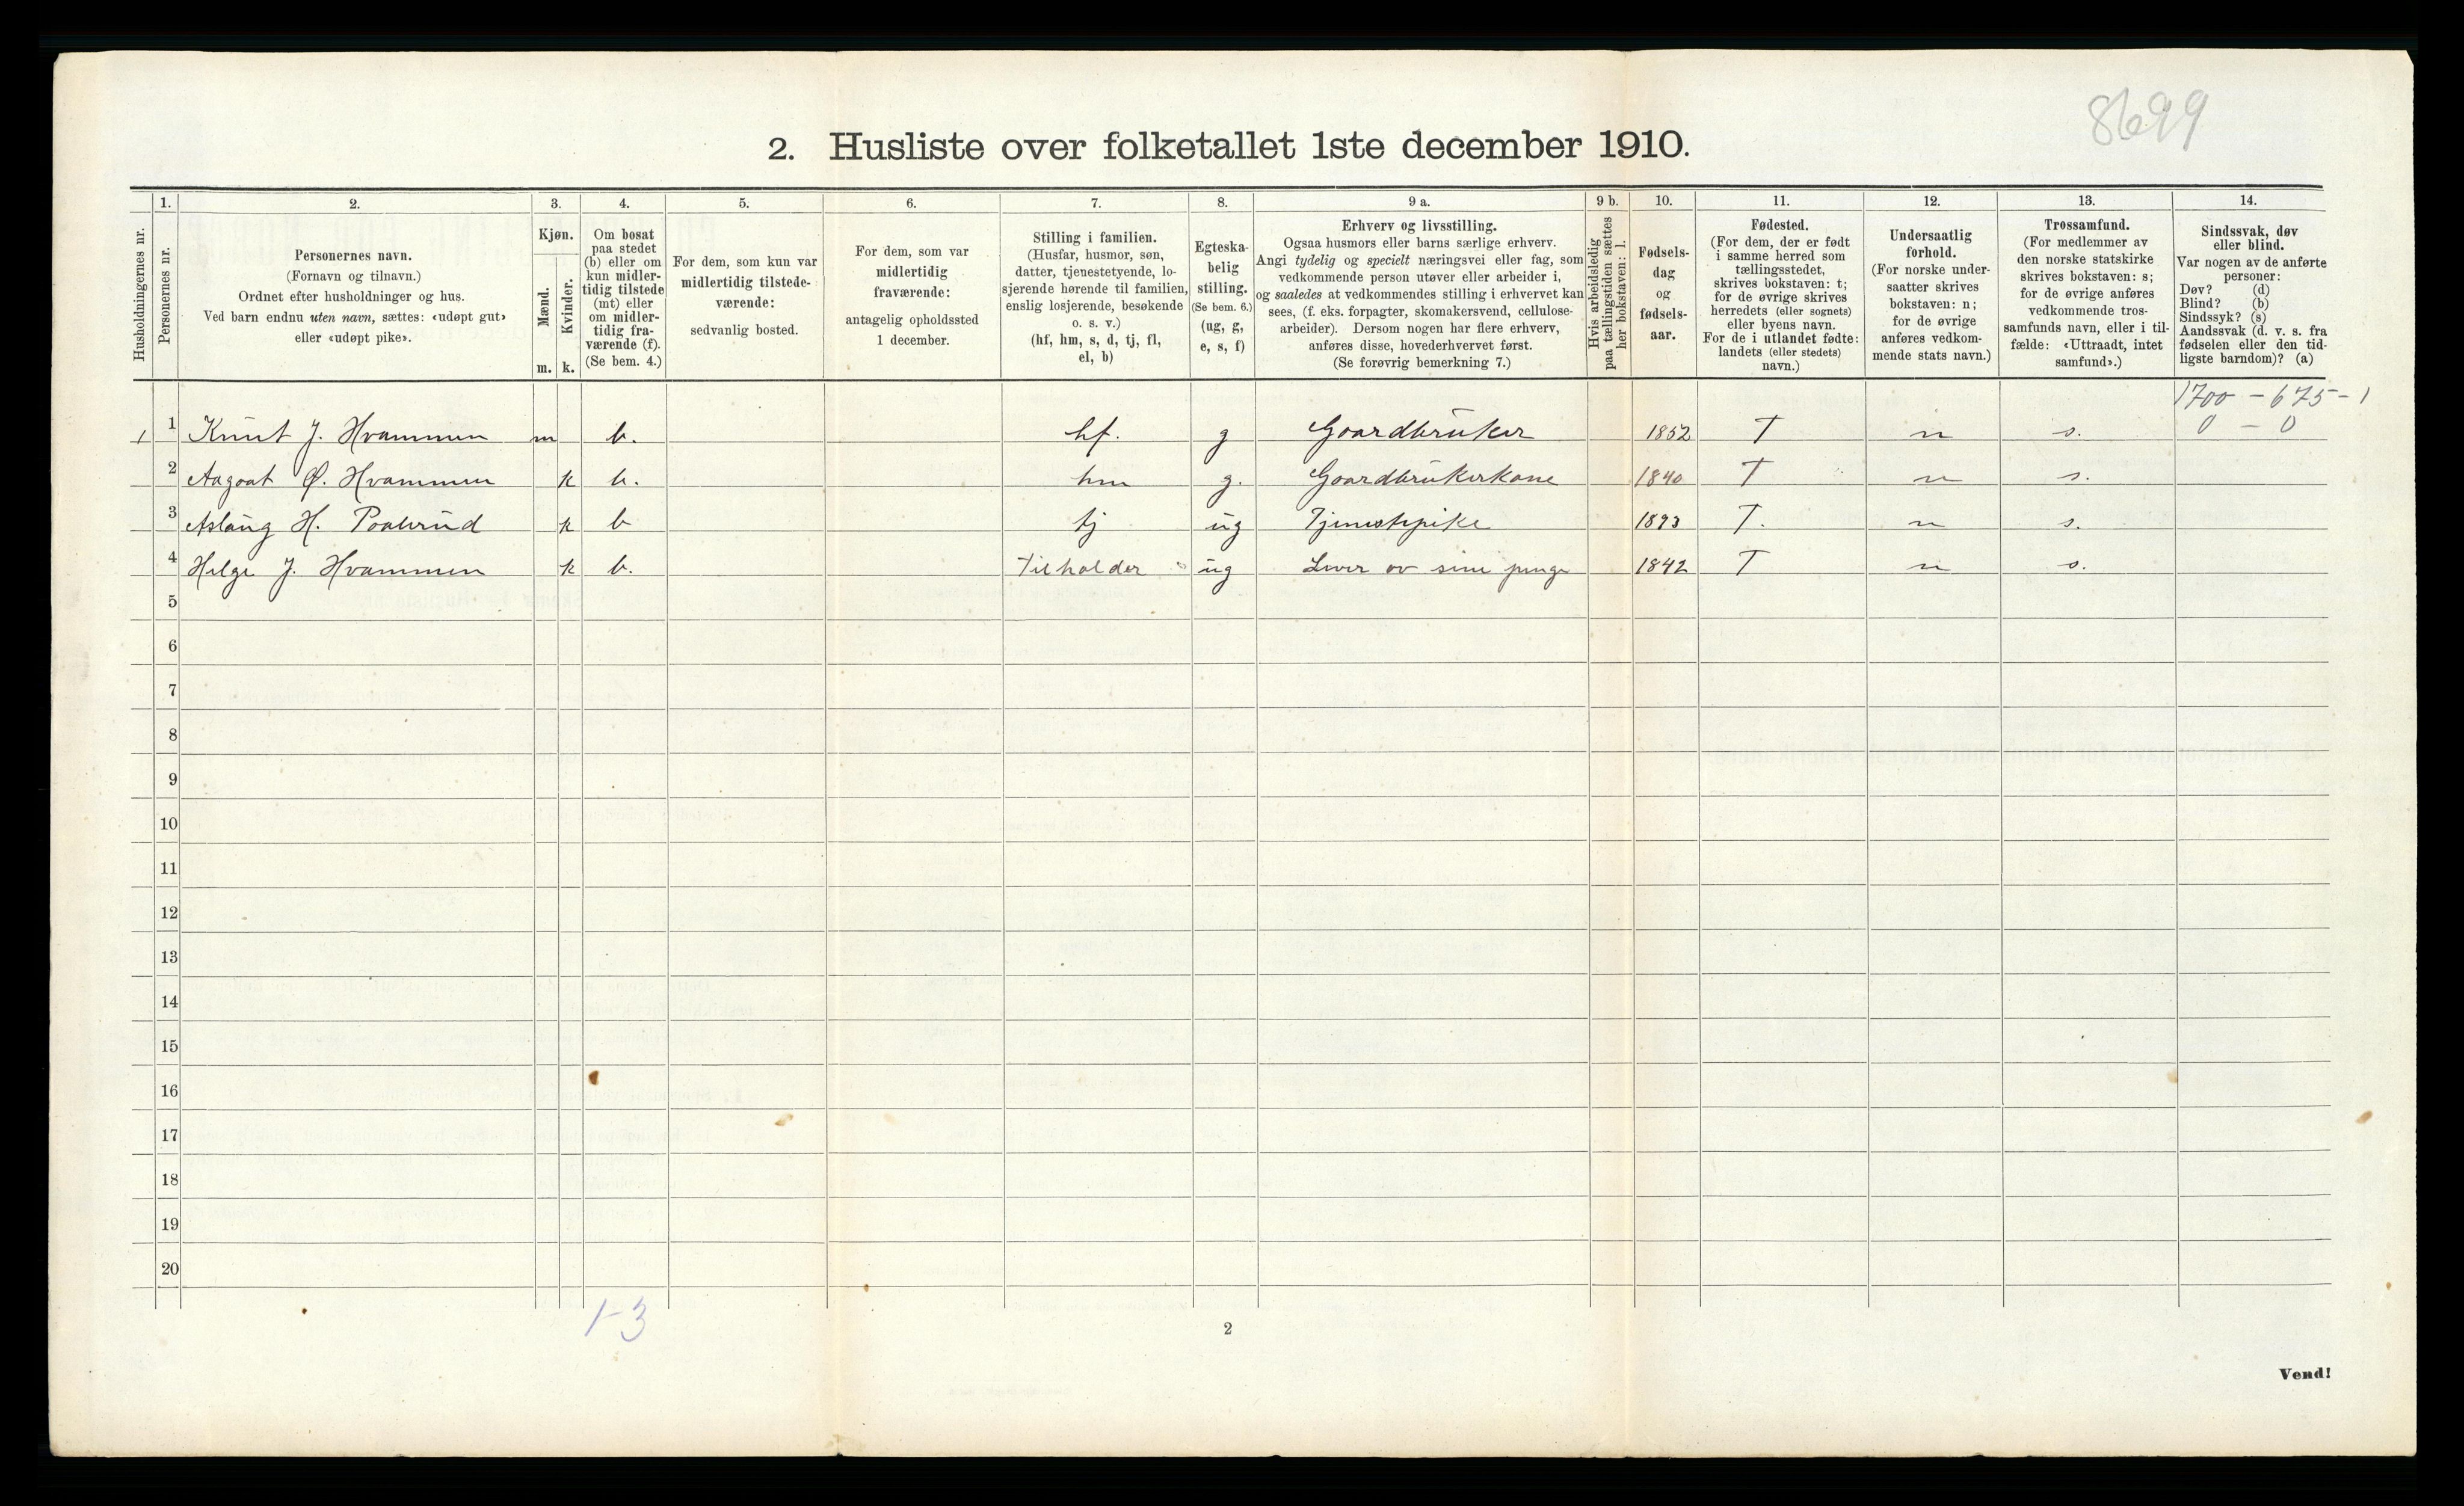 8699
2. Husliste over folketallet 1ste december 1910.
Husholdningernes nr.
1.
Personernes nr.
2.
Personernes navn.
(Fornavn og tilnavn.)
Ordnet efter husholdninger og hus.
Ved barn endnu uten navn, sættes: «udøpt gut»
eller «udøpt pike».
3.
Kjøn.
Mænd.
Kvinder.
m. k.
4.
Om bosat
paa stedet
(b) eller om
kun midler-
tidig tilstede
(mt) eller
om midler-
tidig fra-
værende (f).
(Se bem. 4.)
5.
For dem, som kun var
midlertidig tilstede-
værende:
sedvanlig bosted.
6.
For dem, som var
midlertidig
fraværende:
antagelig opholdssted
1 december.
7.
Stilling i familien.
(Husfar, husmor, søn,
datter, tjenestetyende, lo-
sjerende hørende til familien,
enslig losjerende, besøkende
o. s. v.)
(hf, hm, s, d, tj, fl,
el, b)
8.
Egteska-
belig
stilling.
(Se bem. 6.)
(ug, g,
e, s, f)
9 a.
Erhverv og livsstilling.
Ogsaa husmors eller barns særlige erhverv.
Angi tydelig og specielt næringsvei eller fag, som
vedkommende person utøver eller arbeider i,
og saaledes at vedkommendes stilling i erhvervet kan
sees, (f. eks. forpagter, skomakersvend, cellulose-
arbeider). Dersom nogen har flere erhverv,
anføres disse, hovederhvervet først.
(Se forøvrig bemerkning 7.)
9 b.
Hvis arbeidsledig
paa tællingstiden sættes
her bokstaven: l.
10.
Fødsels-
dag
og
fødsels-
aar.
11.
Fødested.
(For dem, der er født
i samme herred som
tællingsstedet,
skrives bokstaven: t;
for de øvrige skrives
herredets (eller sognets)
eller byens navn.
For de i utlandet fødte:
landets (eller stedets)
navn.)
12.
Undersaatlig
forhold.
(For norske under-
saatter skrives
bokstaven: n;
for de øvrige
anføres vedkom-
mende stats navn.)
13.
Trossamfund.
(For medlemmer av
den norske statskirke
skrives bokstaven: s;
for de øvrige anføres
vedkommende tros-
samfunds navn, eller i til-
fælde: «Uttraadt, intet
samfund».)
14.
Sindssvak, døv
eller blind.
Var nogen av de anførte
personer:
Døv? (d)
Blind? (b)
Sindssyk? (s)
Aandssvak (d. v. s. fra
fødselen eller den tid-
ligste barndom)? (a)
1700 - 675 - 1
0 - 0
1 1 Knut J. Hvammen m b. hf. g Gaardbruker 1852 T n s.
2 Aagoat Ø. Hvammen k b. hm g. Gaardbrukerkone 1840 T n s.
3 Aslaug H. k b tj ug Tjenestepike 1893 T. n s.
4 Helge J. Hvammen k b. Tilholder ug Lever av sine penge 1842 T n s.
5
6
7
8
9
10
11
12
13
14
15
16
17
18
19
20
1-3
2
Vend!